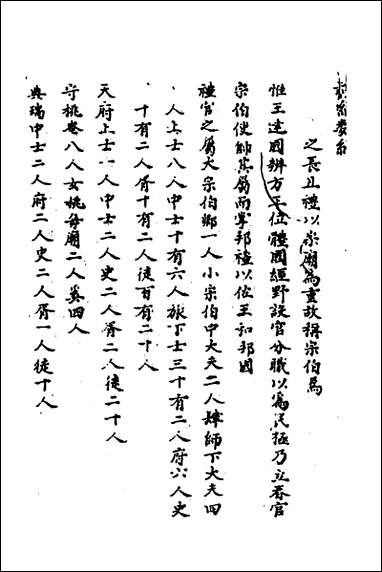 之長且禮以宗廟為重故稱宗伯焉
惟王建國辨方正位體國經野設官分職以為民極乃立春官
宗伯使帥其屬而掌邦禮以佐王和邦國
禮官之屬大宗伯卿一人小宗伯中大夫二人肆師下大夫四
人上士八人中士十有六人旅下士三十有二人府六人史
十有二人胥十有二人徒百有二十人
天府上士一人中士二人史二人胥二人徒二十人
守祧奄八人女祧每廟二人奚四人
典瑞中士二人府二人史二人胥一人徒十人